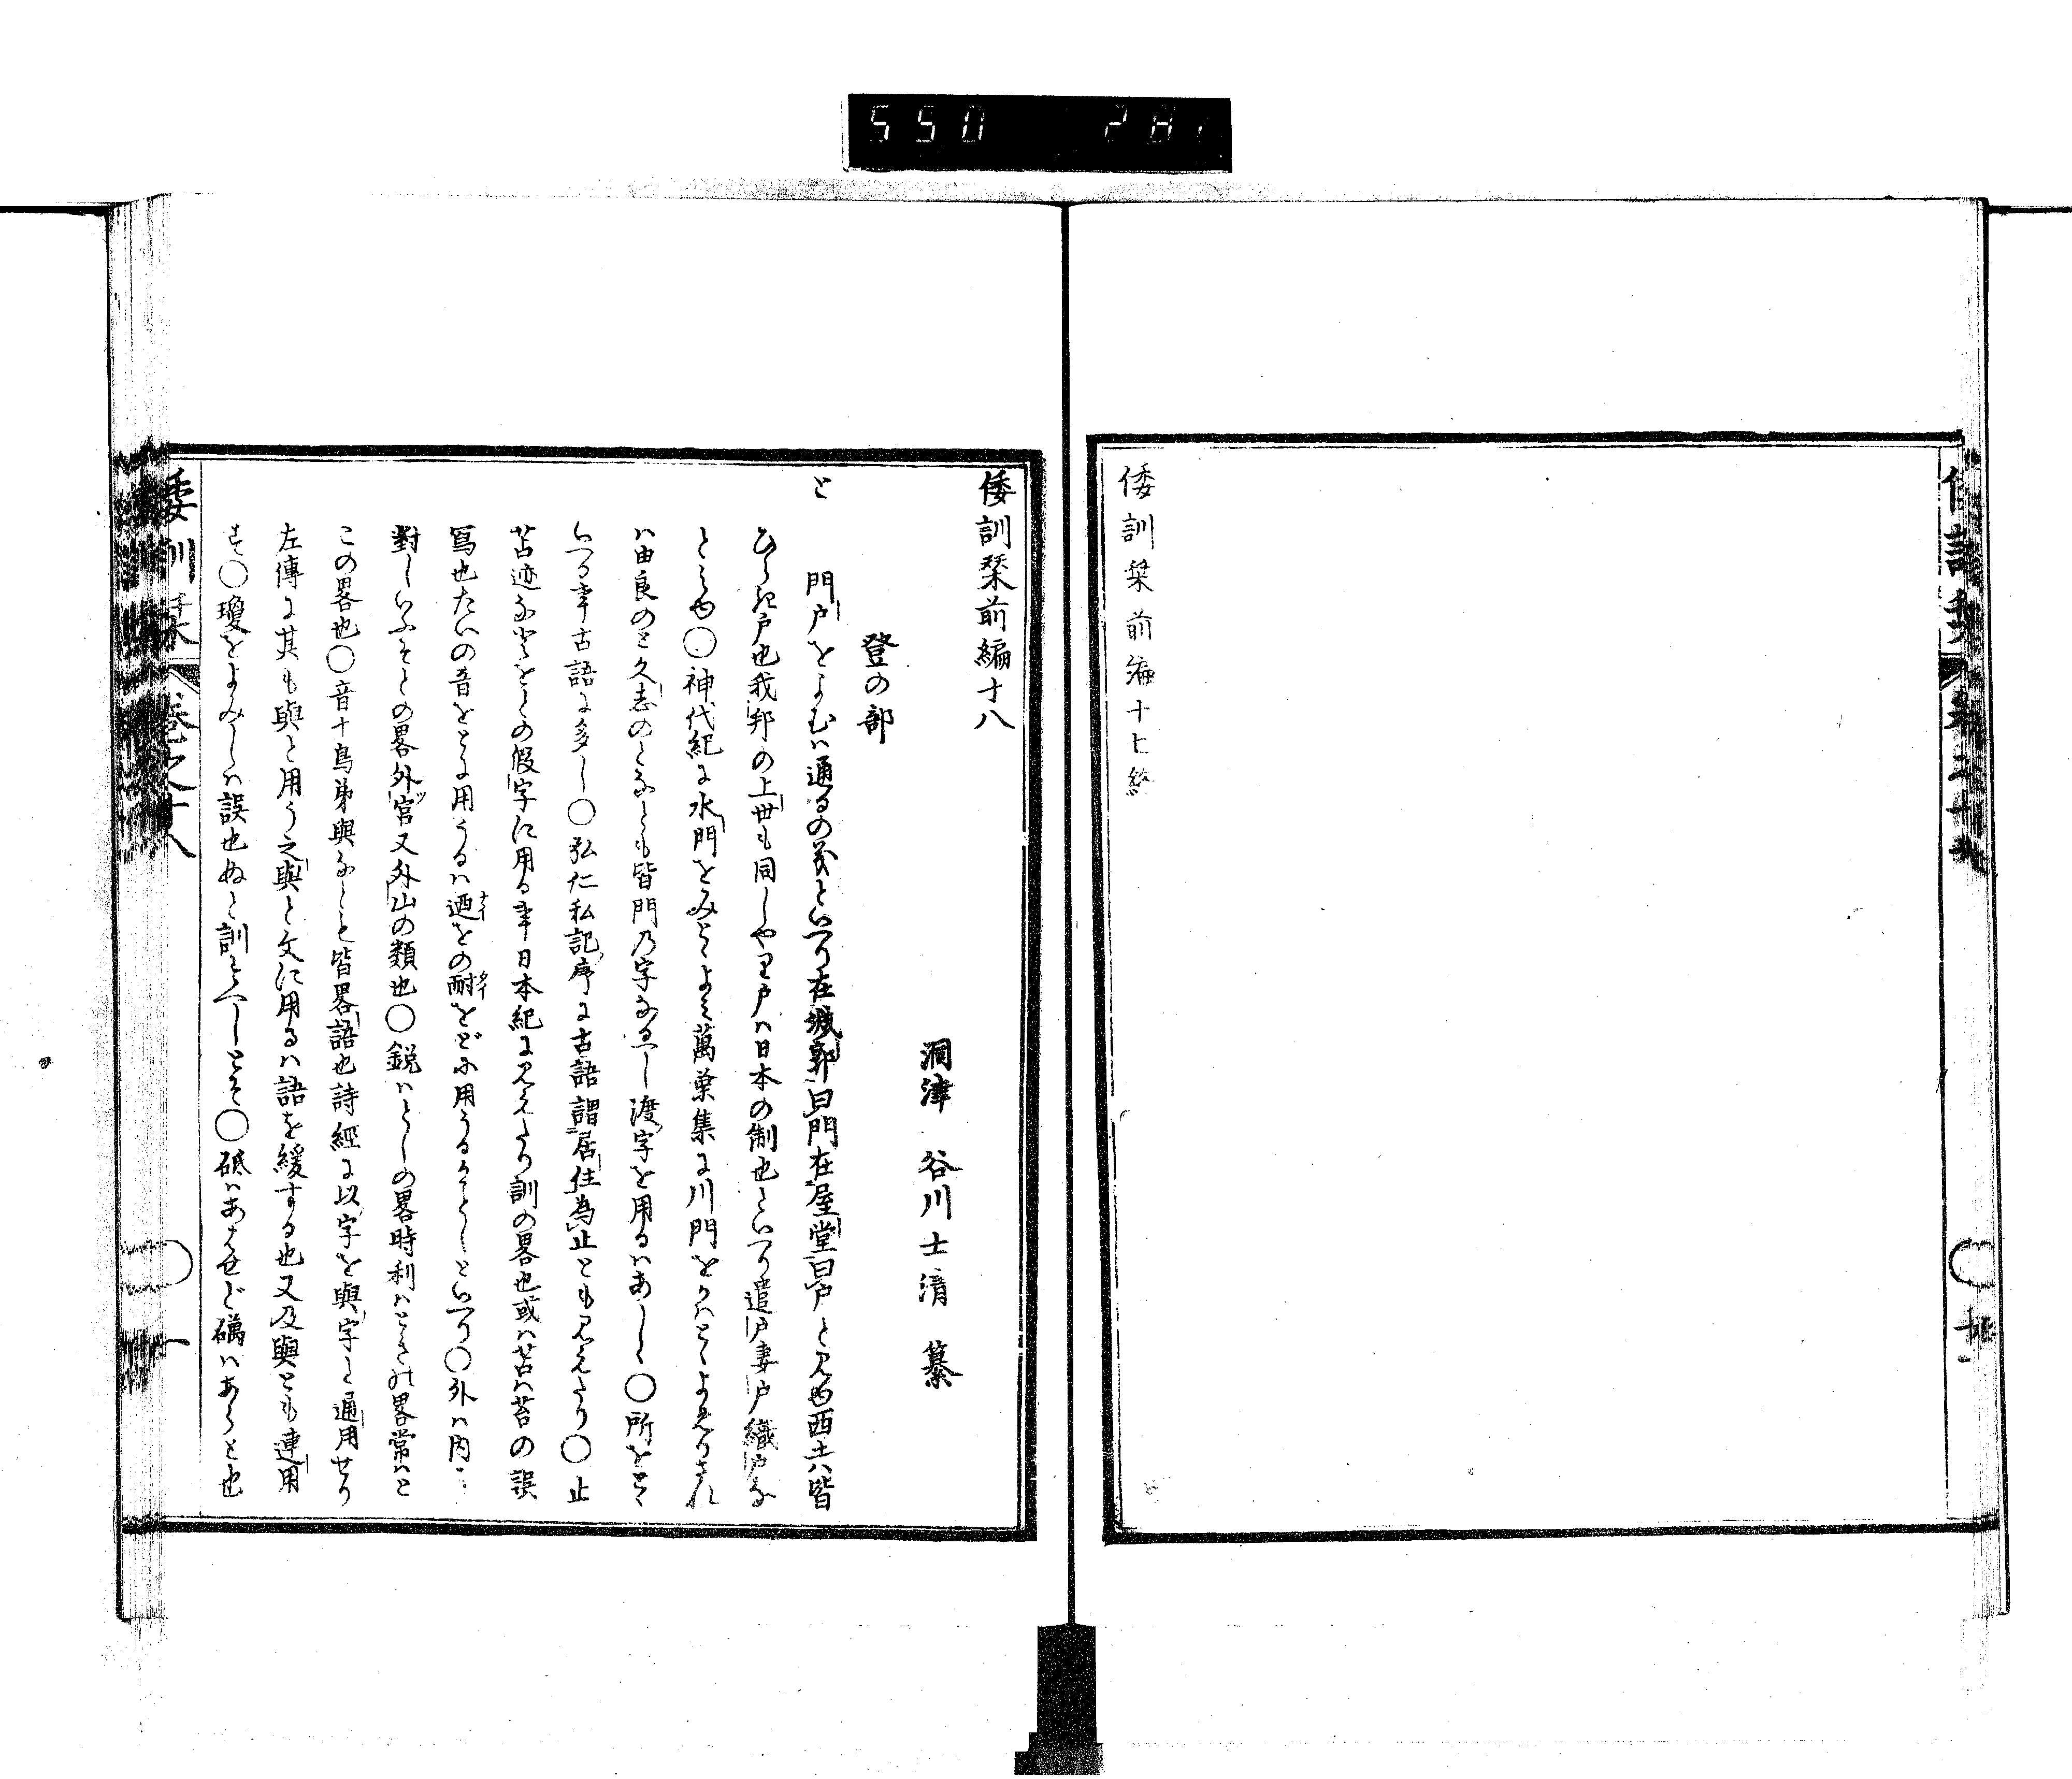 550 281
倭訓栞前編十七終
倭訓栞前編十八
洞津 谷川士清 纂
登の部
と 門戸をよむハ通るの義といへり在城郭曰門在屋堂曰戸と見ゆ西土ハ皆
ひらき戸也我邦の上世も同しやり戸ハ日本の制也といへり遣戸妻戸織戸な
とみゆ〇神代紀に水門をみとゝよみ萬葉集に川門をかはとゝよめりされ
ハ由良のと久志のとなとも皆門乃字なるへし渡字を用るハあしゝ〇所をとゝ
いつる事古語に多し〇弘仁私記序に古語謂居住為止とも見えたり〇止
苫迹なとをとの假字に用る事日本紀に見えたり訓の畧也或ハ苫ハ苔の誤
寫也たいの音をとに用うるハ迺をの耐をどに用うるかことしといへり〇外ハ内に
對しいふそとの畧外宮又外山の類也〇鋭ハとしの畧時利ハときの畧常ハと
この畧也〇音十鳥弟與なとも皆畧語也詩經に以字を與字と通用せり
左傳に其も與と用う之與と文に用るハ語を緩する也又及與とも連用
す〇瓊をよみしハ誤也ぬと訓すへしとそ〇砥ハあはせど礪ハあらと也
倭訓栞 卷之十八 〇 一